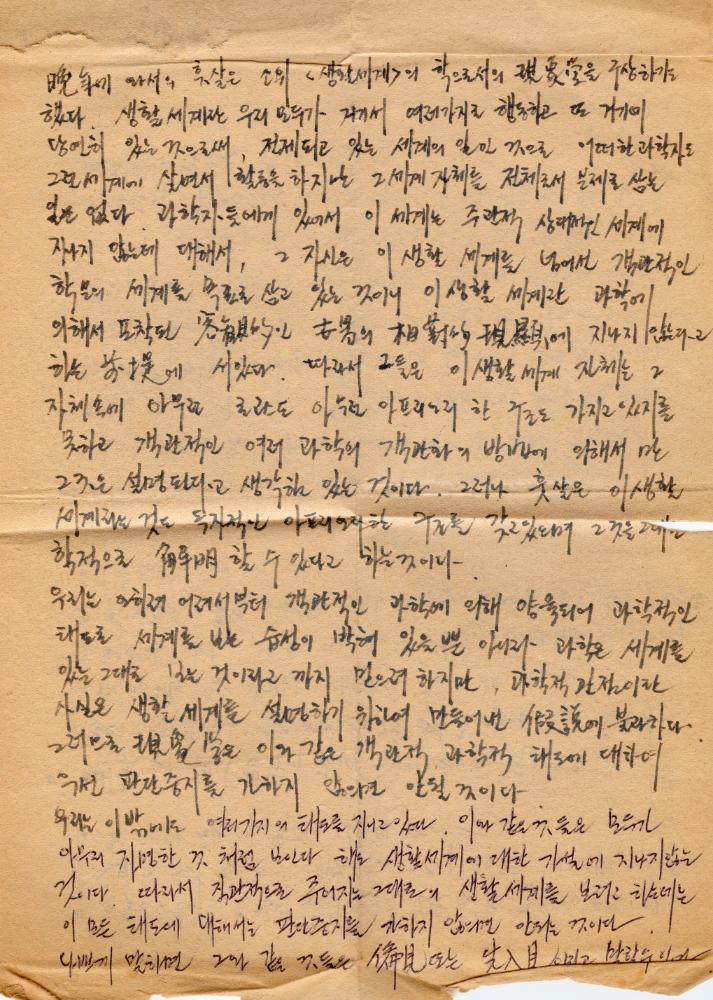 晩年에 와서의 훗살은 소위 <생활세계>의 학으로서의 現象学을 구상하기도
했다. 생활세계란 우리 모두가 거기서 여러가지로 행동하고 또 거기에
당연히 있는 것으로써, 전제되고 있는 세계의 일인 것으로 어떠한 과학자도
그런 세계에 살면서 활동은 하지만 그 세계 자체를 전체로서 문제로 삼는
일은 없다. 과학자들에게 있어서 이 세계는 주관적 상대적인 세계에
지나지 않는데 대해서, 그 자신은 이 생활 세계를 넘어선 객관적인
학문의 세계를 목표로 삼고 있는 것이니 이 생활 세계란 과학에
의해서 포착된 客観的인 世界의 相対的 現顕에 지나지 않는다고
하는 前提에 서있다. 따라서 그들은 이 생활 세계 자체는 그
자체속에 아무런 아프리오리 한 구조도 가지고 있지를
못하고 객관적인 여러 과학의 객관화의 방법에 의해서만
그것은 설명된다고 생각하고 있는 것이다. 그러나 훗살은 이 생활
세계라는 것도 독자적인 아프리오리한 구조를 갖고있으며 그것을 그대로
학적으로 解明 할 수 있다고 하는것이다.
우리는 오히려 어려서부터 객관적인 과학에 의해 양육되어 과학적인
태도로 세계를 보는 습성이 박혀 있을 뿐 아니라 과학은 세계를
있는 그대로 보는 것이라고 까지 믿으려 하지만, 과학적 관점이란
사실은 생활 세계를 설명하기 위하여 만들어낸 假說에 불과하다.
그러므로 現象学은 이와 같은 객관적 과학적 태도에 대하여
우선 판단중지를 가하지 않으면 안될 것이다
우리는 이 밖에도 여러가지의 태도를 지니고있다. 이와 같은것들은 모두가
아무리 자연한 것 처럼 보인다 해도 생활세계에 대한 가설에 지나지않는
것이다. 따라서 직관적으로 주어지는 그대로의 생활세계를 보려고 하는데는
이 모든 태도에 대해서는 판단중지를 가하지 않으면 안되는 것이다.
나쁘게 말하면 그와 같은 것들은 偏見 또는